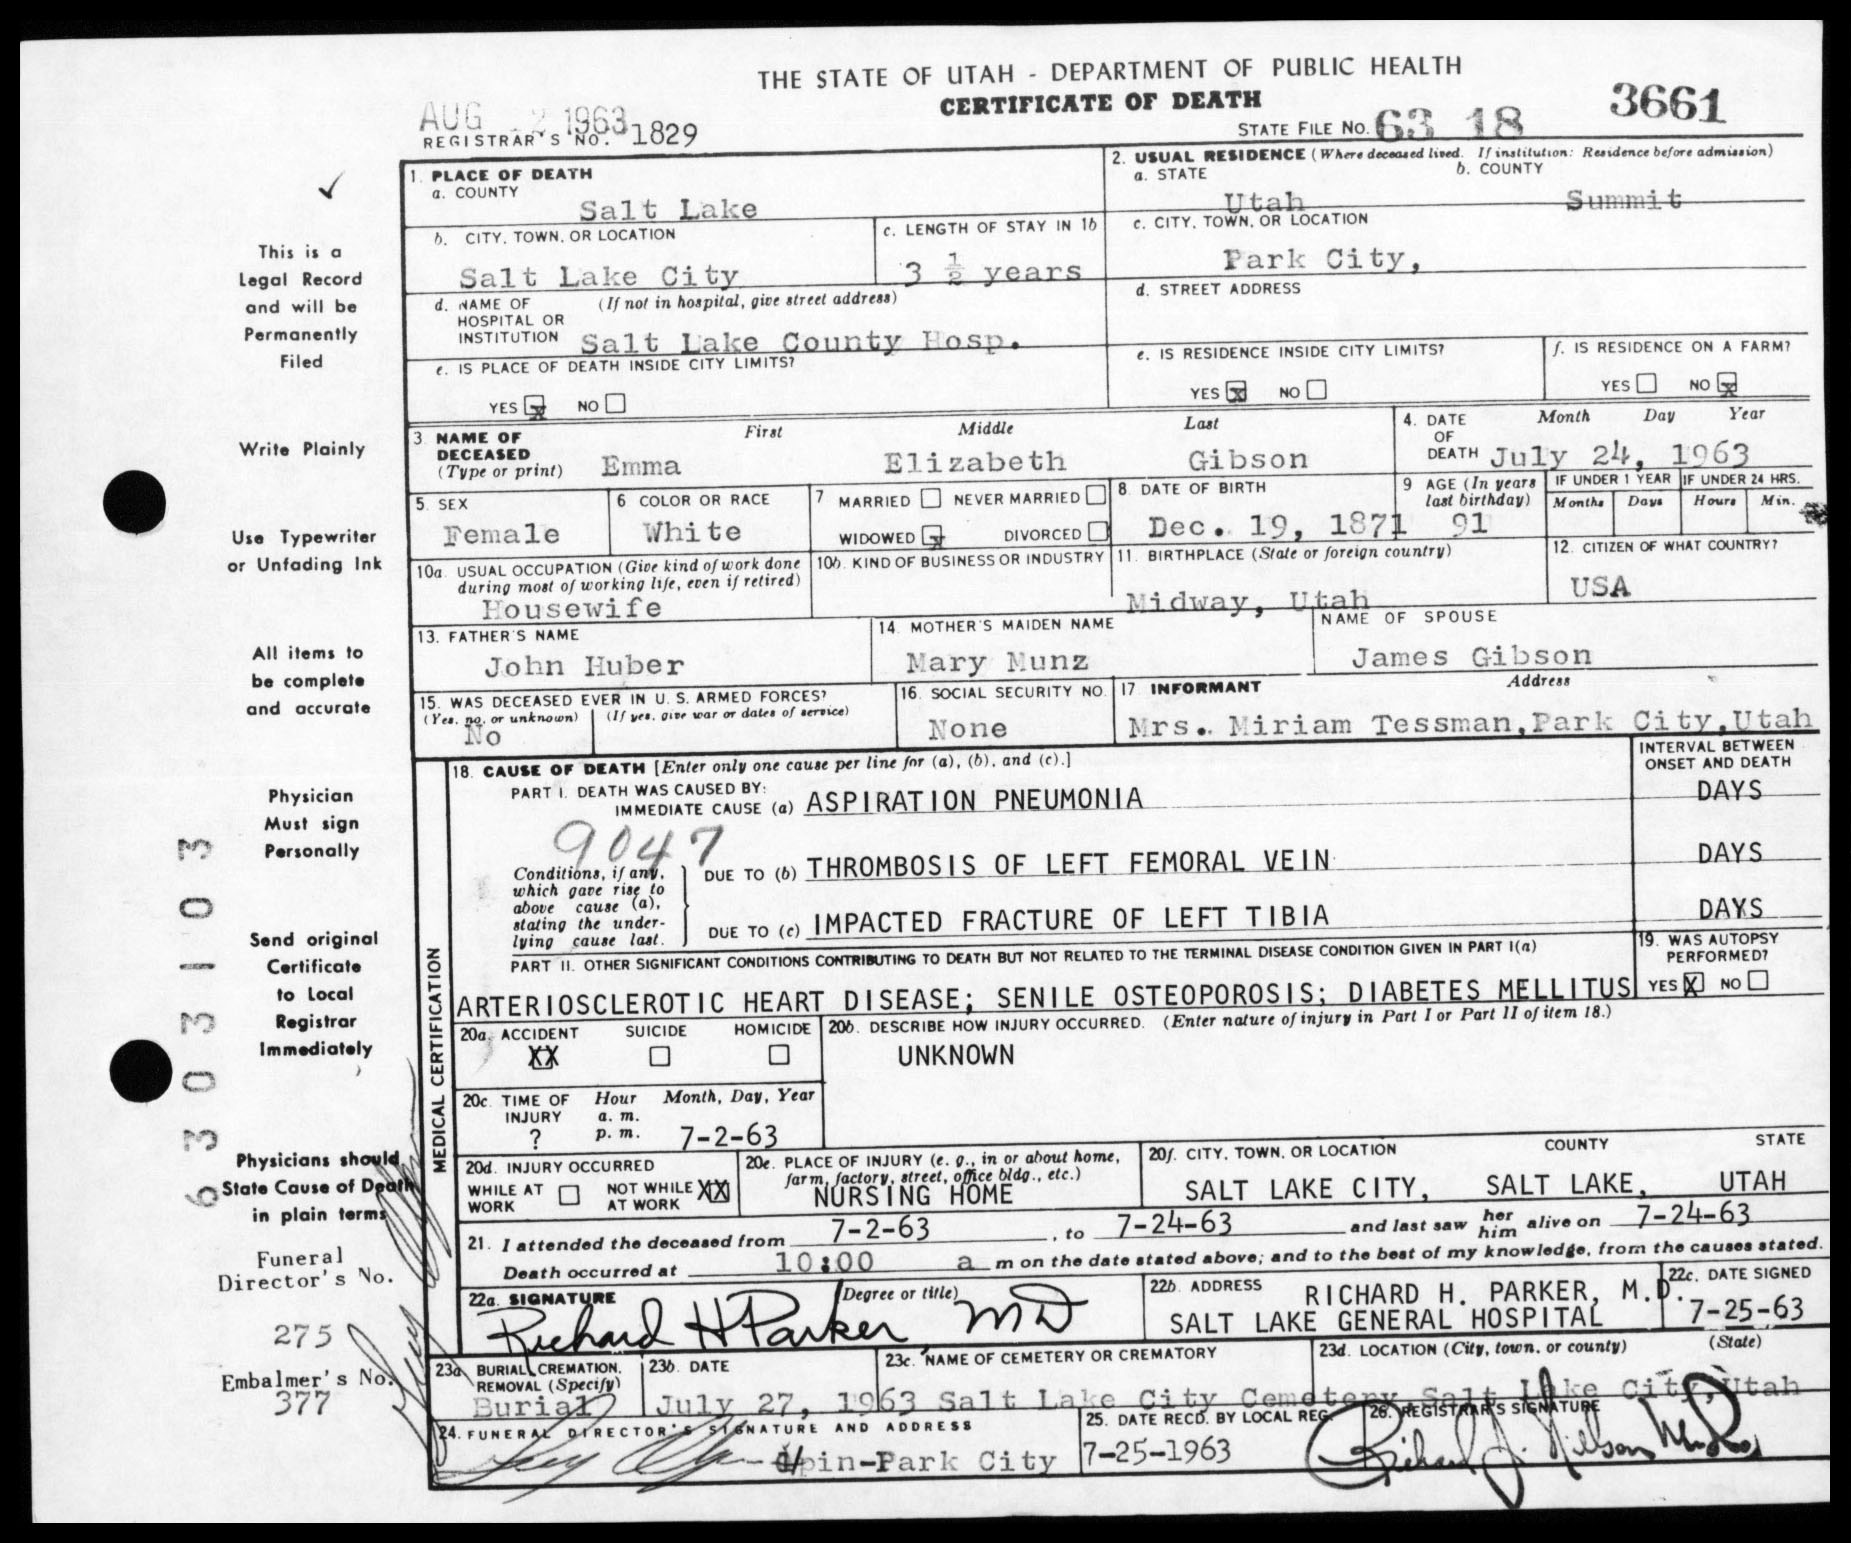 THE STATE OF UTAH - DEPARTMENT OF PUBLIC HEALTH
CERTIFICATE OF DEATH
AUG 2 1963
REGISTRAR'S NO. 1829
STATE FILE NO. 63 18 3661
This is a
Legal Record
and will be
Permanently
Filed
Write Plainly
Use Typewriter
or Unfading Ink
All items to
be complete
and accurate
Physician
Must sign
Personally
Send original
Certificate
to Local
Registrar
Immediately
Physicians should
State Cause of Death
in plain terms
Funeral
Director's No.
275
Embalmer's No.
377
6 3 0 3 1 0 3
1. PLACE OF DEATH
a. COUNTY
Salt Lake
b. CITY, TOWN, OR LOCATION
Salt Lake City
c. LENGTH OF STAY IN 1b
3 ½ years
d. NAME OF HOSPITAL OR INSTITUTION (If not in hospital, give street address)
Salt Lake County Hosp.
e. IS PLACE OF DEATH INSIDE CITY LIMITS?
YES x NO
2. USUAL RESIDENCE (Where deceased lived. If institution: Residence before admission)
a. STATE
Utah
b. COUNTY
Summit
c. CITY, TOWN, OR LOCATION
Park City,
d. STREET ADDRESS
e. IS RESIDENCE INSIDE CITY LIMITS?
YES x NO
f. IS RESIDENCE ON A FARM?
YES NO x
3. NAME OF DECEASED (Type or print)
First Middle Last
Emma Elizabeth Gibson
4. DATE OF DEATH Month Day Year
July 24, 1963
5. SEX
Female
6 COLOR OR RACE
White
7 MARRIED NEVER MARRIED
WIDOWED x DIVORCED
8. DATE OF BIRTH
Dec. 19, 1871
9 AGE (In years last birthday)
91
IF UNDER 1 YEAR
Months Days
IF UNDER 24 HRS.
Hours Min.
10a. USUAL OCCUPATION (Give kind of work done during most of working life, even if retired)
Housewife
10b. KIND OF BUSINESS OR INDUSTRY
11. BIRTHPLACE (State or foreign country)
Midway, Utah
12. CITIZEN OF WHAT COUNTRY?
USA
13. FATHER'S NAME
John Huber
14. MOTHER'S MAIDEN NAME
Mary Munz
NAME OF SPOUSE
James Gibson
15. WAS DECEASED EVER IN U. S. ARMED FORCES?
(Yes, no, or unknown) (If yes, give war or dates of service)
No
16. SOCIAL SECURITY NO.
None
17 INFORMANT Address
Mrs. Miriam Tessman, Park City, Utah
MEDICAL CERTIFICATION
18. CAUSE OF DEATH [Enter only one cause per line for (a), (b), and (c).]
INTERVAL BETWEEN ONSET AND DEATH
PART I. DEATH WAS CAUSED BY:
IMMEDIATE CAUSE (a) ASPIRATION PNEUMONIA DAYS
9047
Conditions, if any, which gave rise to above cause (a), stating the underlying cause last.
DUE TO (b) THROMBOSIS OF LEFT FEMORAL VEIN DAYS
DUE TO (c) IMPACTED FRACTURE OF LEFT TIBIA DAYS
PART II. OTHER SIGNIFICANT CONDITIONS CONTRIBUTING TO DEATH BUT NOT RELATED TO THE TERMINAL DISEASE CONDITION GIVEN IN PART I(a)
ARTERIOSCLEROTIC HEART DISEASE; SENILE OSTEOPOROSIS; DIABETES MELLITUS
19. WAS AUTOPSY PERFORMED?
YES X NO
20a. ACCIDENT SUICIDE HOMICIDE
XX
20b. DESCRIBE HOW INJURY OCCURRED. (Enter nature of injury in Part I or Part II of item 18.)
UNKNOWN
20c. TIME OF INJURY Hour a. m. p. m. Month, Day, Year
? 7-2-63
20d. INJURY OCCURRED
WHILE AT WORK NOT WHILE AT WORK XX
20e. PLACE OF INJURY (e. g., in or about home, farm, factory, street, office bldg., etc.)
NURSING HOME
20f. CITY, TOWN, OR LOCATION COUNTY STATE
SALT LAKE CITY, SALT LAKE, UTAH
21. I attended the deceased from 7-2-63, to 7-24-63 and last saw her him alive on 7-24-63
Death occurred at 10:00 a m on the date stated above; and to the best of my knowledge, from the causes stated.
22a. SIGNATURE (Degree or title)
Richard H Parker, MD
22b. ADDRESS RICHARD H. PARKER, M.D.
SALT LAKE GENERAL HOSPITAL
22c. DATE SIGNED
7-25-63
23a BURIAL, CREMATION, REMOVAL (Specify)
Burial
23b. DATE
July 27, 1963
23c. NAME OF CEMETERY OR CREMATORY
Salt Lake City Cemetery
23d. LOCATION (City, town, or county) (State)
Salt Lake City, Utah
24. FUNERAL DIRECTOR'S SIGNATURE AND ADDRESS
Park City
25. DATE RECD. BY LOCAL REG.
7-25-1963
26. REGISTRAR'S SIGNATURE
Richard J. Nilson